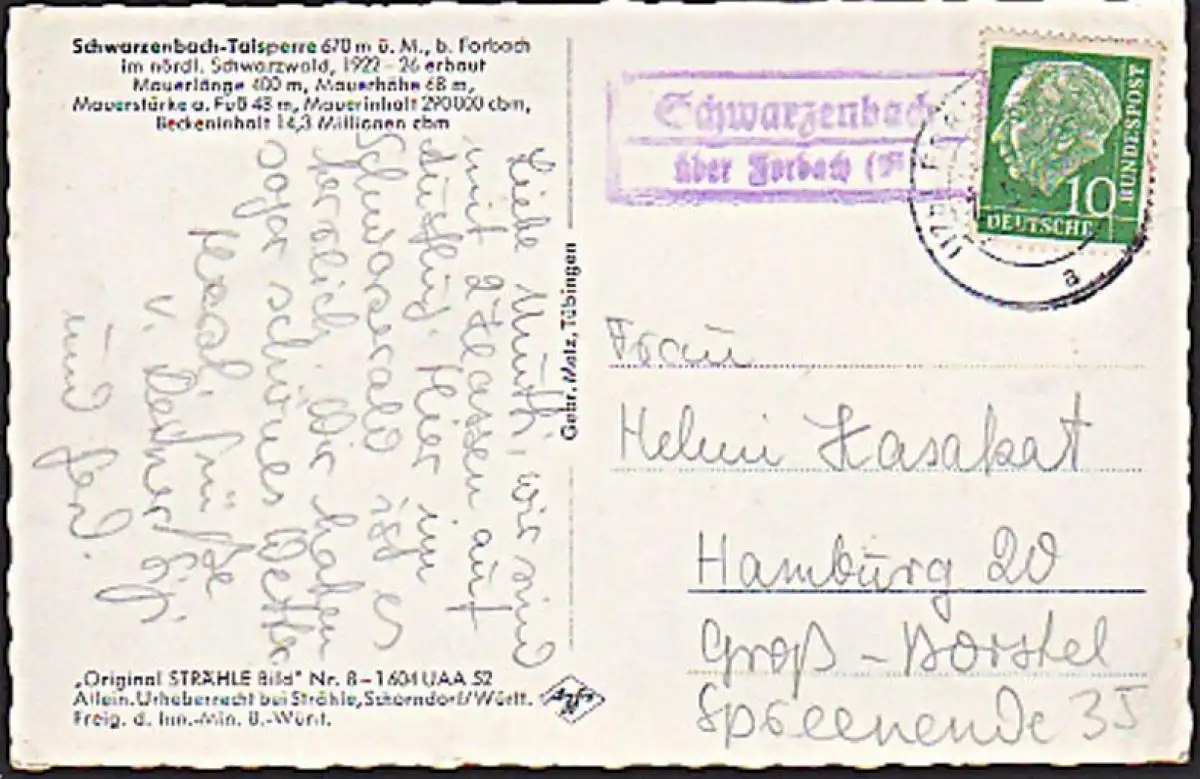 Schwarzenbach-Talsperre 670 m ü. M., b. Forbach
im nördl. Schwarzwald, 1922 - 26 erbaut
Mauerlänge 400 m, Mauerhöhe 68 m,
Mauerstärke a. Fuß 48 m, Mauerinhalt 290 000 cbm,
Beckeninhalt 14,3 Millionen cbm
Liebe Mutti, wir sind
mit 2 Klassen auf
Ausflug. Hier im
Schwarzwald ist es
herrlich. Wir haben
sogar schönes Wetter
Herzl. Grüße
v. Deiner
und
Gebr. Metz, Tübingen
„Original STRÄHLE Bild" Nr. 8 - 1604 UAA 52
Allein. Urheberrecht bei Strähle, Schorndorf/Württ.
Freig. d. Inn.-Min. B.-Würt.
Agfa
Schwarzenbach
über Forbach
10
DEUTSCHE
BUNDESPOST
a
Frau
Helmi Kasakat
Hamburg 20
Groß-Borstel
Spreenende 35